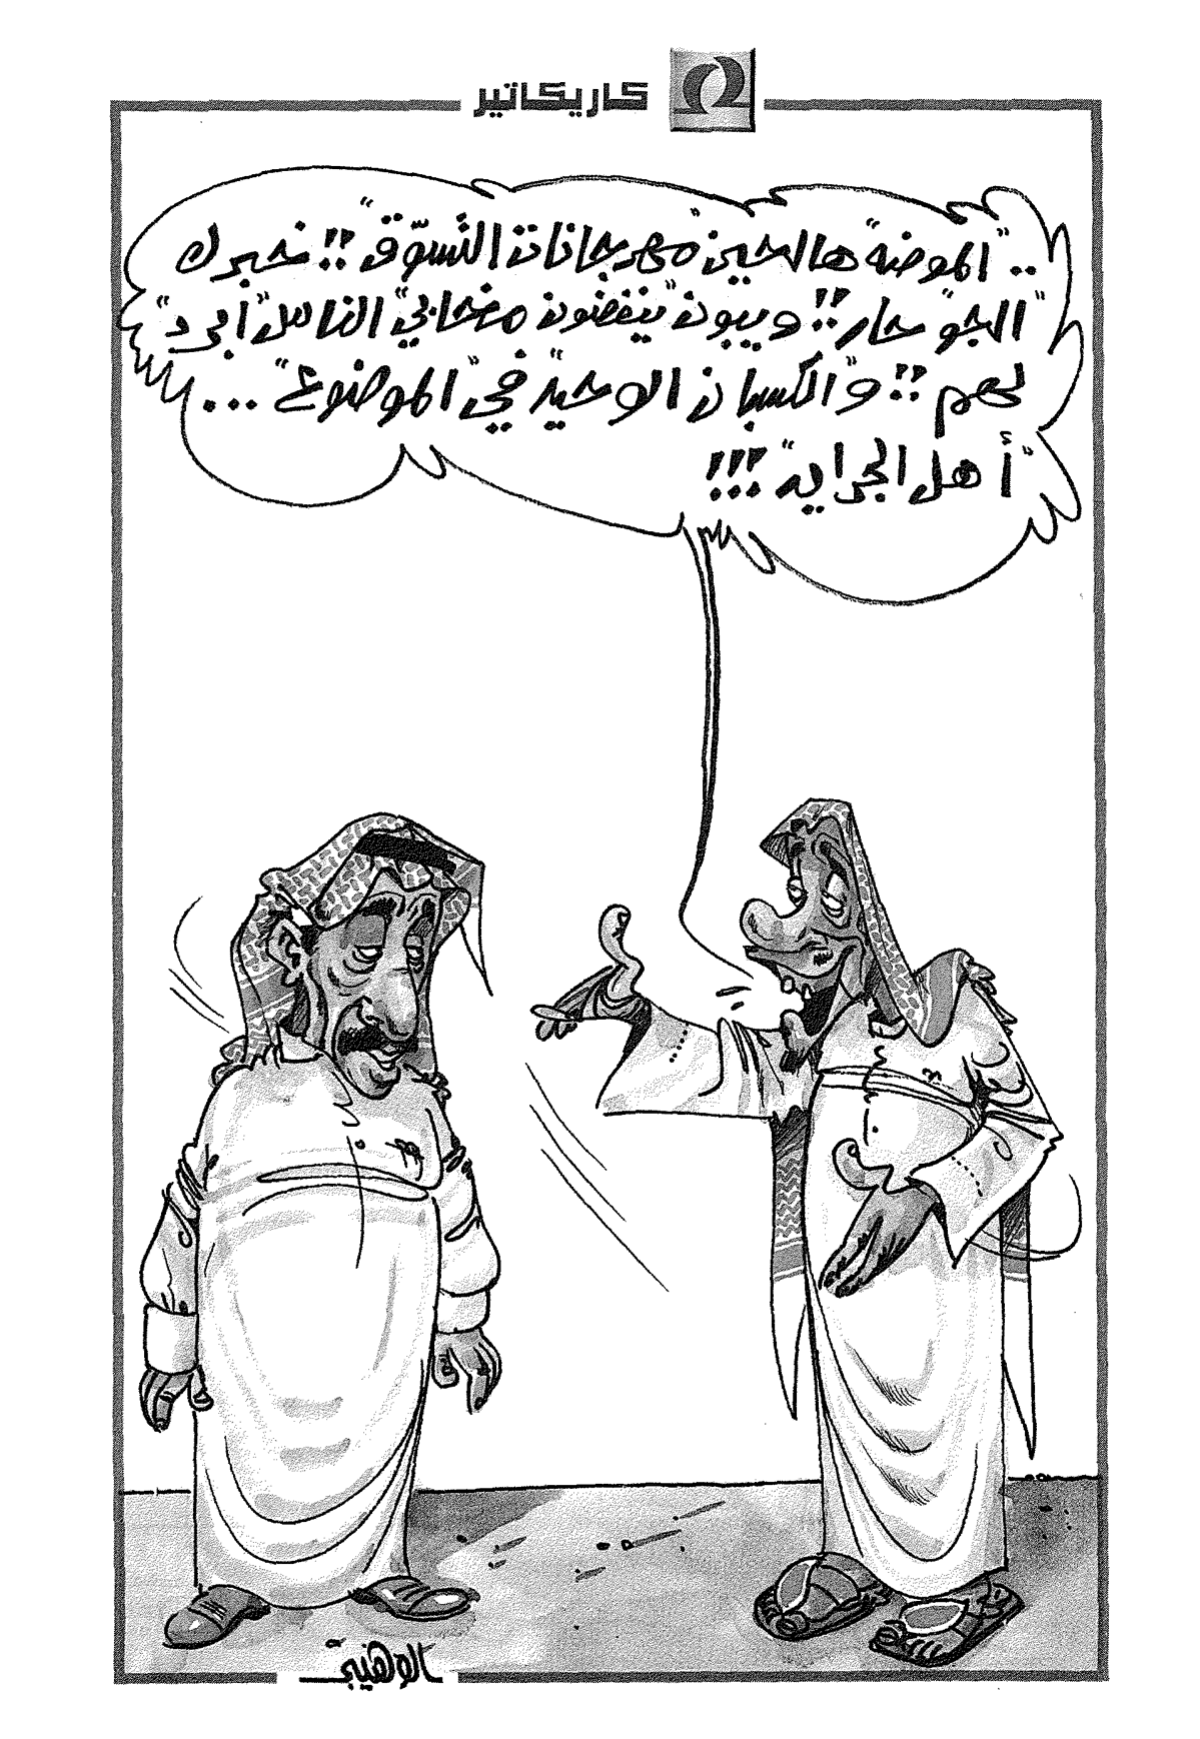 كاريكاتير
.. "الموضه" هالحين "مهرجانات التسوّق"!! خبرك
"الجو" حار!! ويبون "ينفضون" مخابي "الناس" "أبرد"
لهم!! و"الكسبان الوحيد" في "الموضوع"...
"أهل الجرايد"!!!
الوهيبي